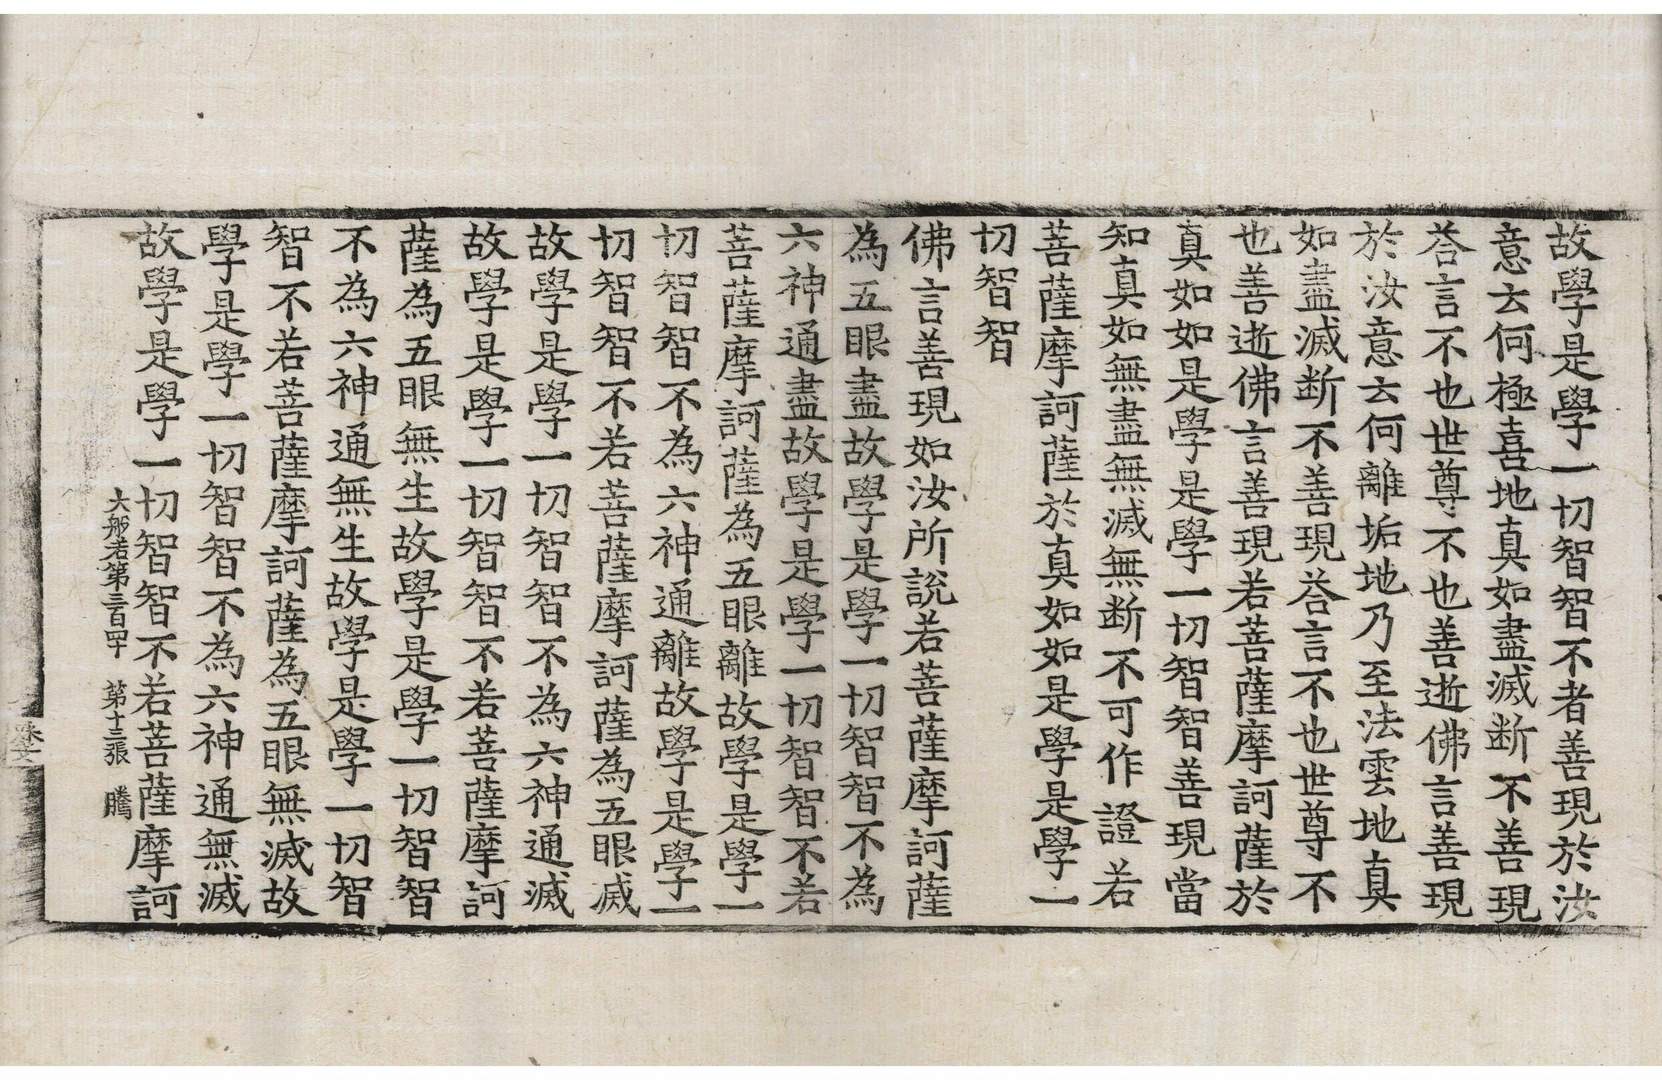 故學是學一切智智不者善現於汝
意去何極喜地真如盡滅断不善現
荅言不也世尊不也善逝佛言善現
於汝意去何離垢地乃至法雲地真
如盡滅断不善現荅言不也世尊不
也善逝佛言善現若菩薩摩訶薩於
真如如是學是學一切智智善現當
知真如無盡無滅無断不可作證若
菩薩摩訶薩於真如如是學是學一
切智智
佛言善現如汝所說若菩薩摩訶薩
為五眼盡故學是學一切智智不為
六神通盡故學是學一切智智不若
菩薩摩訶薩為五眼離故學是學一
切智智不為六神通離故學是學一
切智智不若菩薩摩訶薩為五眼滅
故學是學一切智智不為六神通滅
故學是學一切智智不若菩薩摩訶
薩為五眼無生故學是學一切智智
不為六神通無生故學是學一切智
智不若菩薩摩訶薩為五眼無滅故
學是學一切智智不為六神通無滅
故學是學一切智智不若菩薩摩訶
大般若第三百四十 第十三張 騰